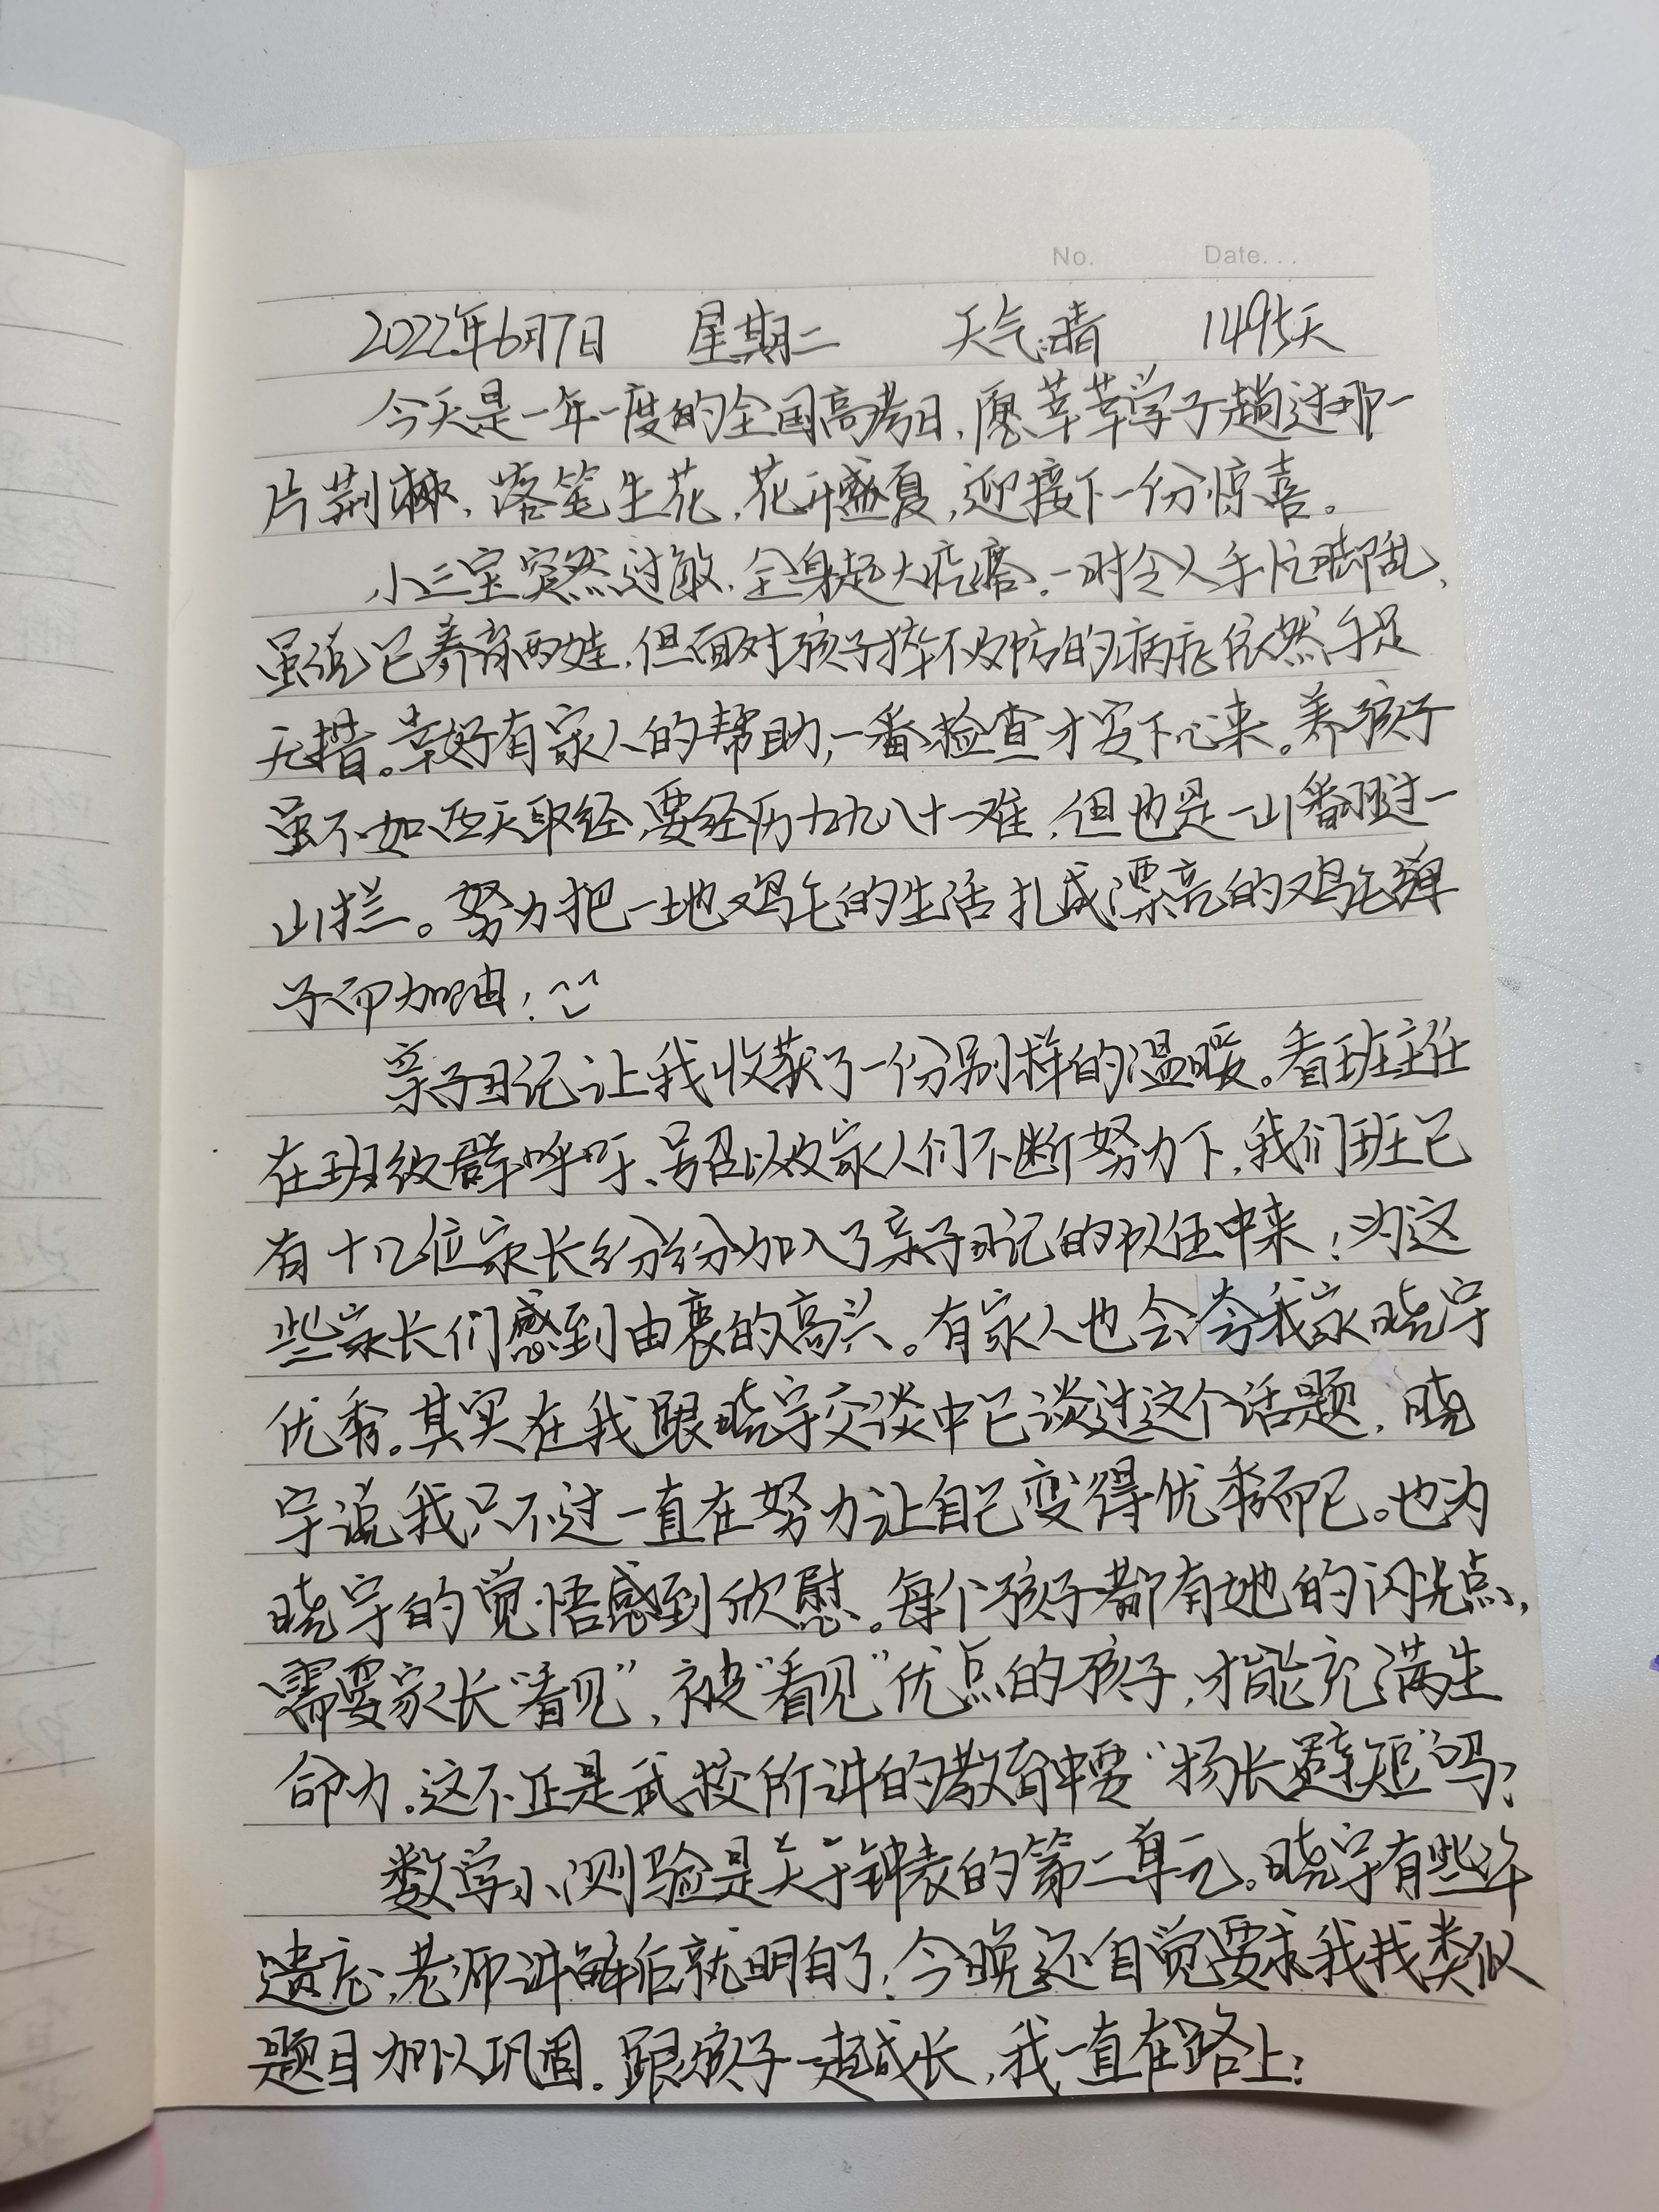 No.  Date...
2022年6月7日 星期二 天气:晴 1495天
今天是一年一度的全国高考日,愿莘莘学子趟过那一
片荆棘,落笔生花,花开盛夏,迎接下一份惊喜。
小三宝突然过敏,全身起大疙瘩。一时令人手忙脚乱,
虽说已养育两娃,但面对孩子猝不及防的病症依然手足
无措。幸好有家人的帮助,一番检查才安下心来。养孩子
虽不如西天取经,要经历九九八十一难,但也是一山翻过一
山拦。努力把一地鸡毛的生活扎成漂亮的鸡毛掸
子而加油!
亲子日记让我收获了一份别样的温暖。看班主任
在班级群呼吁、号召以及家人们不断努力下,我们班已
有十几位家长纷纷加入了亲子日记的队伍中来!为这
些家长们感到由衷的高兴。有家人也会夸我家晓宇
优秀。其实在我跟晓宇交谈中已谈过这个话题,晓
宇说我只不过一直在努力让自己变得优秀而已。也为
晓宇的觉悟感到欣慰。每个孩子都有她的闪光点,
需要家长“看见”,被“看见”优点的孩子,才能充满生
命力。这不正是武校所讲的教育中要“扬长避短”吗?
数学小测验是关于钟表的第二单元。晓宇有些许
遗忘,老师讲解后就明白了,今晚还自觉要求我找类似
题目加以巩固。跟孩子一起成长,我一直在路上!